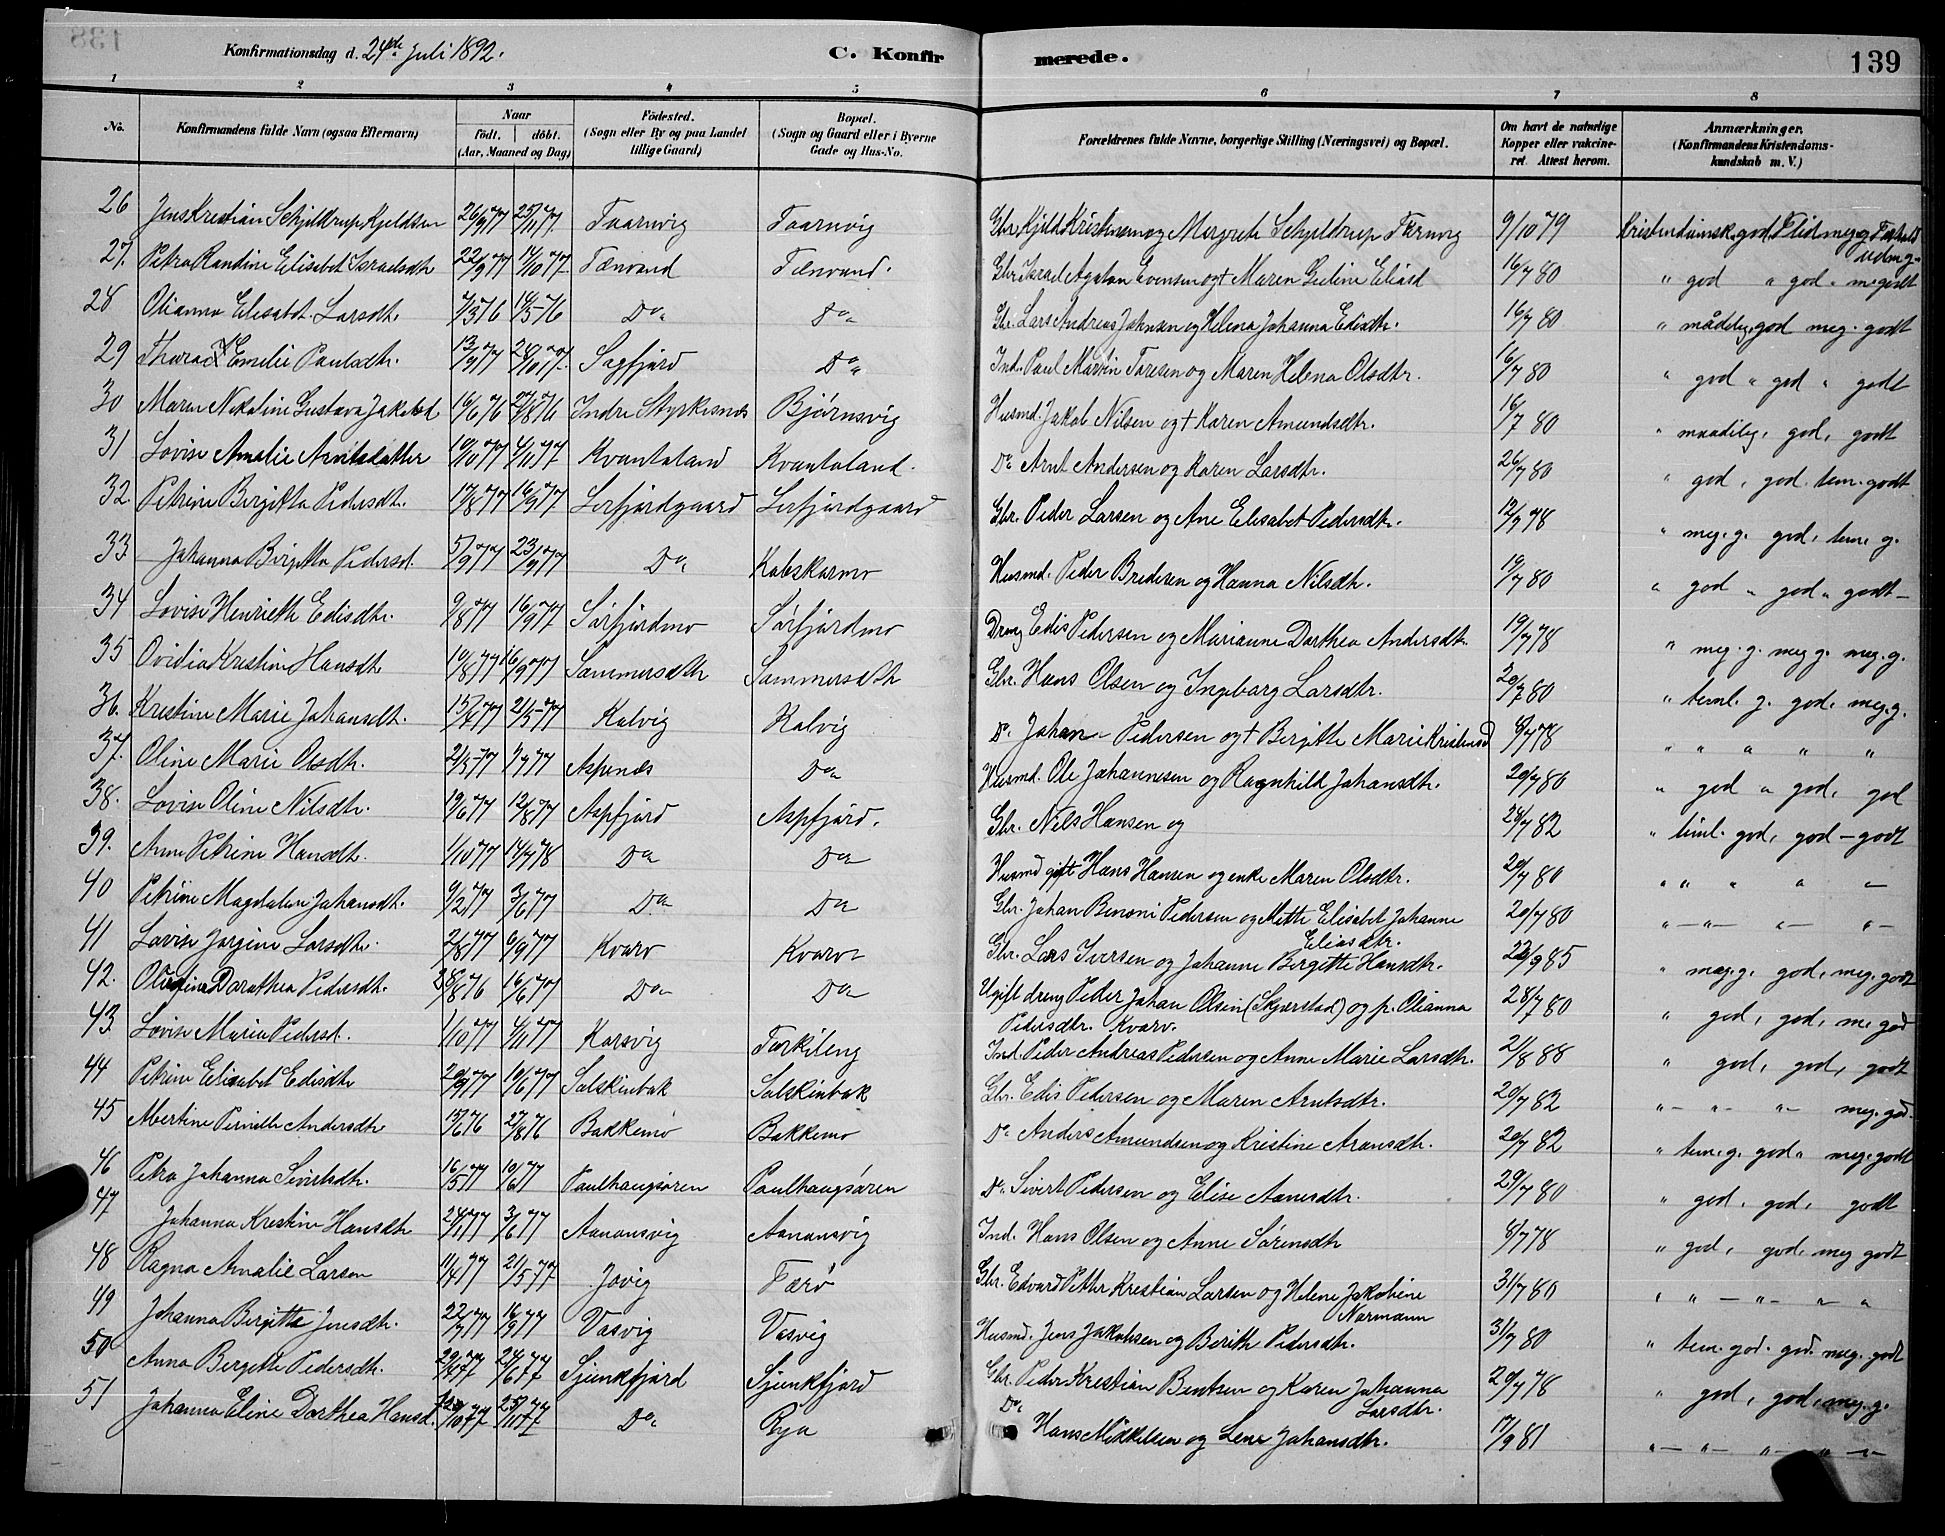 139
Konfirmationsdag d. 24de Juli 1892. C. Konfirmerede.
1 2 3 4 5 6 7 8
No. Konfirmandens fulde Navn (ogsaa Efternavn) Naar födt. döbt. (Aar, Maaned og Dag) Födested. (Sogn eller By og paa Landet tillige Gaard) Bopæl. (Sogn og Gaard eller i Byerne Gade og Hus-No. Forældrenes fulde Navne, borgerlige Stilling (Næringsvei) og Bopæl. Om havt de naturlige Kopper eller vakcineret. Attest herom. Anmærkninger. (Konfirmandens Kristendomskundskab m. V.)
26 Jens Kristian Schjeldrup Kjeldsen 26/9 77 25/11 77. Taarnvig Taarnvig Gbr. Kjeld Kristensen og Margrete Schjeldrup 9/10 79
27. Petra Randine Elisabet Israelsdtr 22/9 77 14/10 77 Tænvand Tænvand. Gbr. Israel Agaton Evensen og + Maren Guline Eliasd 16/7 80 " god " god
28 Olianna Elisabet Larsdtr. 7/3 76 14/5 76 Do Do Gbr. Lars Andreas Johnsen og Helena Johanna Edisdtr. 16/7 80 " mådelig, god meg. godt
29 Emelie Paulsdtr. 13/9 77 28/10 77. Sagfjord Do Ind. Paul Martin Toresen og Maren Helena Olsdtr. 16/7 80 " god " god " godt
30 Maren Nikoline Gustava Jakobsd 16/6 76 27/8 76 Indre Styrkesnes Bjørnsvig Husmd. Jakob Nilsen og + Karen Amundsdtr. 16/7 80 " maadelig, god, godt
31 Lovise Amalie Arntsdatter 10/10 77 4/11 77 Kvantoland Kvantoland. Do Arnt Andersen og Karen Larsdtr. 26/7 80 " god, god tem. godt
32 Petrine Birgitta Pedersdt. 17/8 77 16/9 77 Lerfjordgaard Lerfjordgaard Gbr. Peder Larsen og Ane Elisabet Pedersdtr. 12/7 78 " meg. g. god, tem. g.
33 Johanna Birgitta Pedersd. 5/9 77 23/9 77 Do Kobskarmo Husmd. Peder Bredesen og Hanna Nilsdtr. 19/7 80 " god " god " godt
34 Lovise Henriette Edisdtr. 9/8 77 16/9 77 Sørfjordmo Sørfjordmo Dreng Edis Pedersen og Marianne Dorthea Andersdtr. 19/7 78 " meg. g. meg g. meg. g.
35 Ovidia Kristine Hansdtr 19/8 77 16/9 77 Sommersdtr Sommersdtr Gbr. Hans Olsen og Ingeborg Larsdtr. 20/7 80 " teml. g. god, meg. g.
36. Kristine Marie Johansdt. 15/4 77 21/5 77 Kalvig Kalvig Do. Johan Pedersen og + Birgitte Marie Kristensd 8/7 78 " " " " "
37. Oline Marie Olsdtr. 2/5 77 1/7 77 Aspenes Do Husmd. Ole Johannesen og Ragnhild Johansdtr. 20/7 80 " god " god, god
38. Lovise Oline Nilsdtr. 19/6 77 12/8 77 Aspfjord Aspfjord. Gbr. Nils Hansen og 24/7 82 " teml. god, god - godt
39. Anne Petrine Hansdtr. 1/10 77 14/7 78 Do Do Husmd gift Hans Hansen og enke Maren Olsdtr. 20/7 80 " " " " -
40 Petrine Magdalena Johansdt. 9/2 77 3/6 77 Do Do Gbr. Johan Benoni Pedersen og Mette Elisabet Johanne Eliasdtr. 20/7 80 " - " - " - " -
41 Lovise Jorgine Larsdtr. 2/8 77 6/9 77 Kvarv Kvarv Gbr. Lars Iversen og Johanne Birgitte Hansdtr. 22/9 85 " meg. g. god, meg. godt
42. Dorothea Pedersdt. 28/8 76 16/6 77 Do Do Ugift dreng Peder Johan Olsen (Skjerstad) og p. Olianna Pedersdtr. Kvarv. 28/7 80 " god, god, m. god
43. Lovise Maria Pedersd. 1/10 77 4/11 77 Korsvig Torkileng Ind. Peder Andreas Pedersen og Anne Marie Larsdtr. 21/8 88 " god, god, godt
44 Petrine Elisabet Edisdtr 20/4 77 10/6 77 Solskinbak Solskinbak Gbr. Edis Pedersen og Maren Arntsdtr. 20/7 82 " - " - " - meg. god.
45 Albertine Pernille Andersdtr 15/6 76 27/8 76 Bakkemo Bakkemo Do Anders Amundsen og Kristine Aronsdtr. 20/7 82 " tem. g. god " meg. godt
46 Petra Johanna Sivertsdtr. 16/5 77 10/6 77 Paulhaugsøren Paulhaugsøren Do. Sivert Pedersen og Elise Aanesdtr. 29/7 80 " god, god, godt
47 Johanna Kristine Hansdtr 24/1 77 3/6 77 Aanonsvig Aanonsvig Ind. Hans Olsen og Anne Sørensdtr 8/7 78 " god, god, meg godt
48 Ragna Amalie Larsen 11/4 77 21/5 77 Jovig Færø Gbr. Edvard Petter Kristian Larsen og Helene Jakobine Normann 31/7 80 " " - " - " - "
49 Johanna Birgitte Jensdtr. 22/7 77 16/9 77 Vasvig Vasvig Husmd. Jens Jakobsen og Berith Pedersdtr. 31/7 80 " tem. god. god. meg. godt
50 Anna Bergitte Pedersdtr. 29/4 77 24/6 77 Sjunkfjord Sjunkfjord Gbr. Peder Kristian Bentsen og Karen Johanna Larsdtr. 20/7 78 " god, god, meg. g.
51 Johanna Eline Dorthea Hansd. 12/10 77 25/11 77 Do Rya Do Hans Mikkelsen og Lene Johansdtr. 17/9 81 " - " - " - " - " -